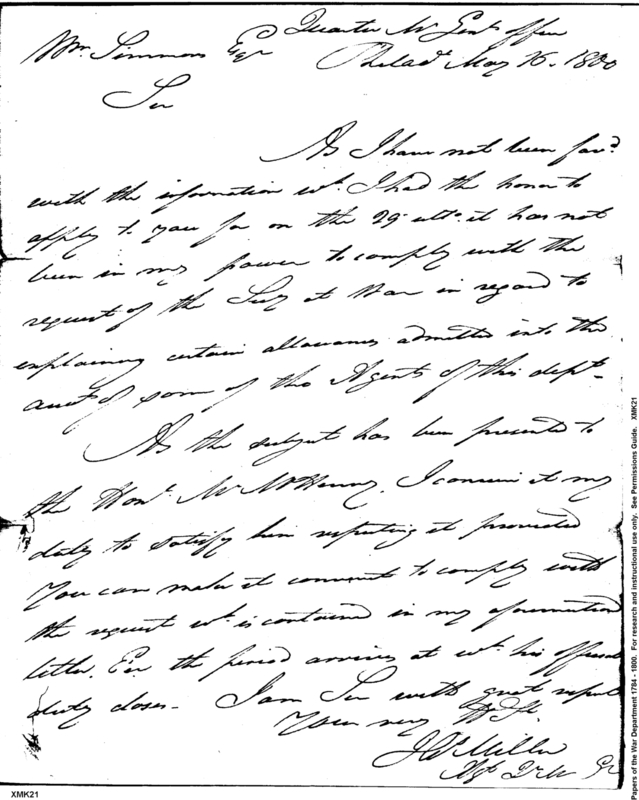 Quarter Mr Genl office
Wm. Simmons Esqr Philada May 16. 1800
Sir
As I have not been favd
with the information wh. I had the honor to
apply to you for on the 29. ulto. it has not
been in my power to comply with the
request of the Secy at War in regard to
explaining certain allowances admitted into the
accts of some of the Agents of this dept.
As the subject has been presented to
the Honl. Mr McHenry, I conceive it my
duty to satisfy him respecting it provided
You can make it convenient to comply with
the request wh. is contained in my aforementioned
letter, E'er the period arrives at wh. his official
duty closes. I am Sir with great respect
Your very H St.
Jn Miller
XMK21
Papers of the War Department 1784 - 1800. For research and instructional use only. See Permissions Guide. XMK21